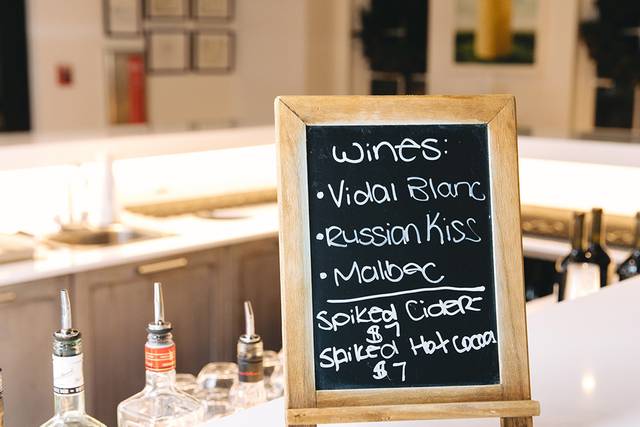 Wines:
• Vidal Blanc
• Russian Kiss
• Malbec
Spiked Cider
$7
Spiked Hot Cocoa
$7